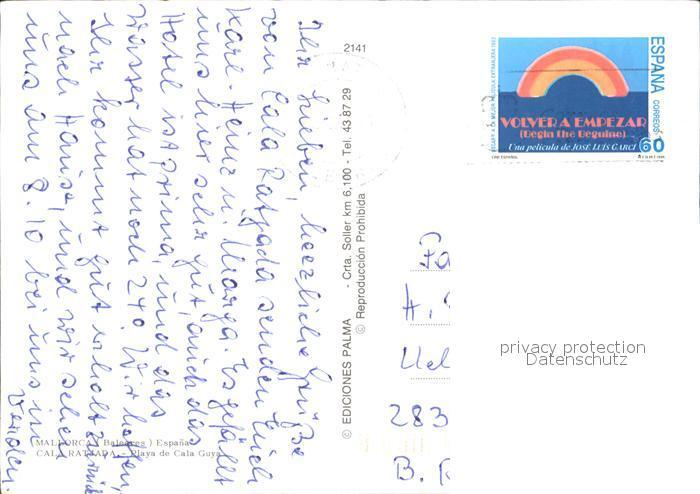 Ihr Lieben, herzliche Grüße
von Cala Ratjada senden Euch
Karl-Heinz u. Marga. Es gefällt
uns hier sehr gut, auch das
Hotel ist prima, und das
Wasser hat noch 24°. Wir hoffen,
Ihr kommt gut erholt zurück
nach Hause, und wir sehen
uns am 8.10 bei uns in
Verden.
(MALLORCA (Baleares) España
CALA RATJADA - Playa de Cala Guya
2141
© EDICIONES PALMA - Crta. Soller km 6,100 - Tel. 43 87 29
© Reproducción Prohibida
OSCAR A LA MEJOR PELICULA EXTRANJERA 1982
ESPAÑA
CORREOS
VOLVER A EMPEZAR
(Begin the Beguine)
60
Una película de JOSÉ LUIS GARCI
CINE ESPAÑOL
Fa
H.
283
B.
privacy protection
Datenschutz